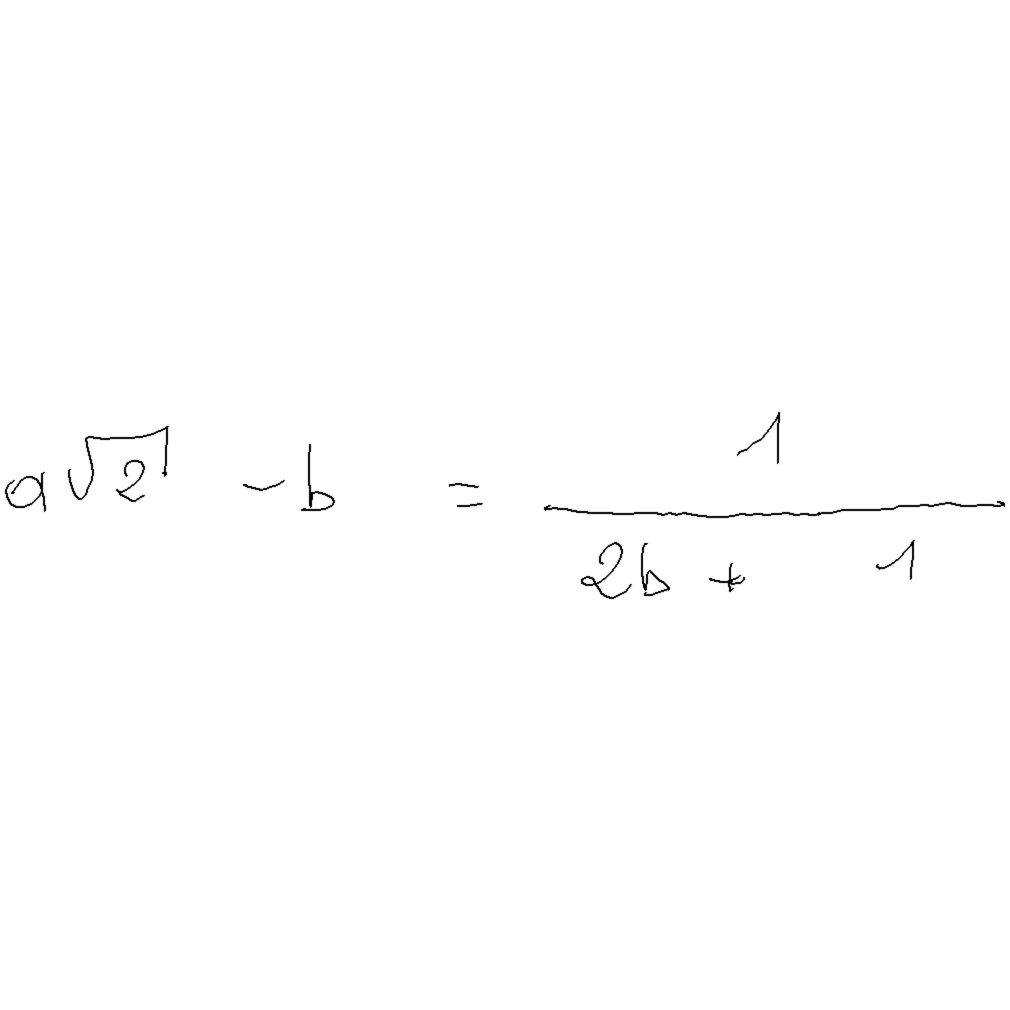 a√2 - b = 1
2b + 1